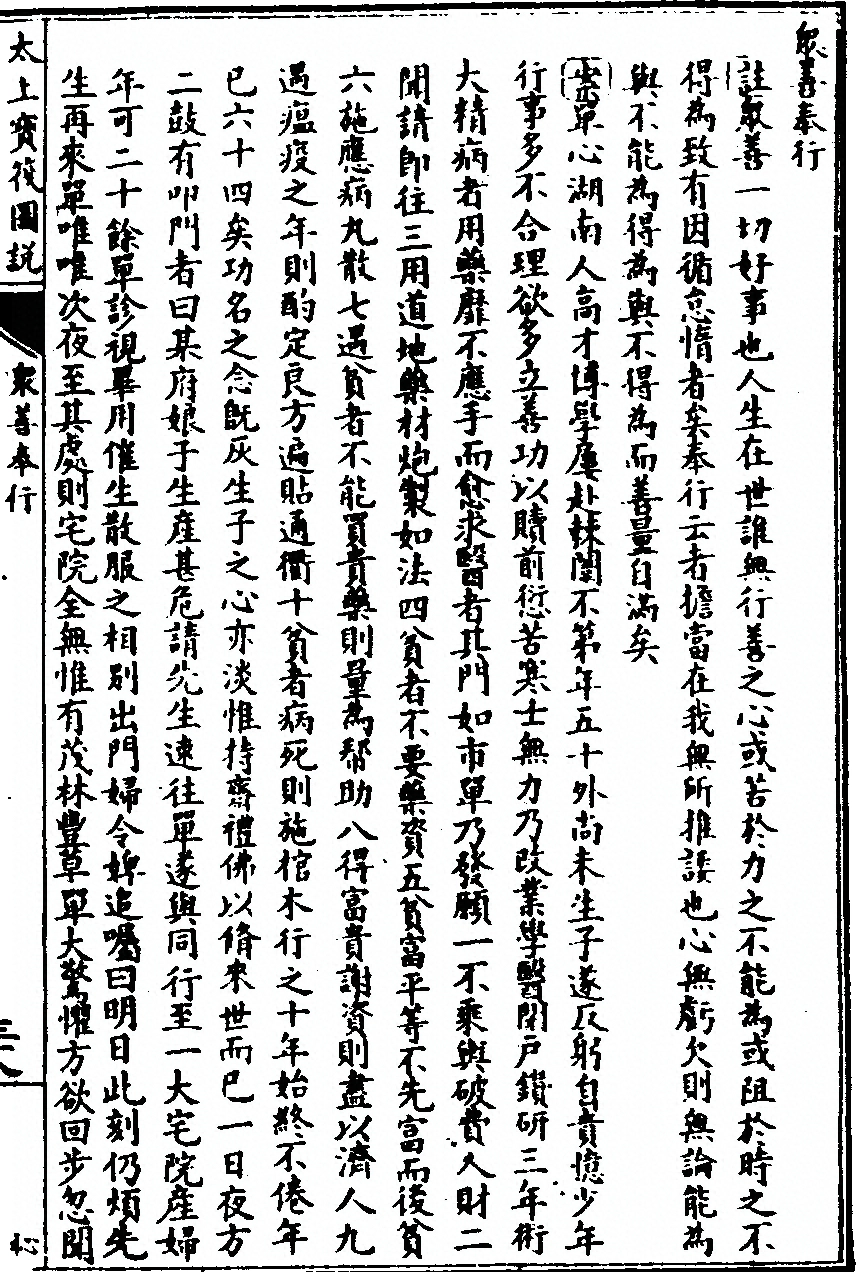 眾善奉行
註眾善一切好事也人生在世誰無行善之心或苦於力之不能為或阻於時之不
得為致有因循怠惰者矣奉行云者擔當在我無所推諉也心無虧欠則無論能為
與不能為得為與不得為而善量自滿矣
案單心湖南人高才博學屢赴棘闈不第年五十外尚未生子遂反躬自責憶少年
行事多不合理欲多立善功以贖前愆苦寒士無力乃改業學醫閉戶鑽研三年術
大精病者用藥靡不應手而愈求醫者其門如市單乃發願一不乘輿破費人財二
聞請即往三用道地藥材炮製如法四貧者不要藥資五貧富平等不先富而後貧
六施應病丸散七遇貧者不能買貴藥則量為幫助八得富貴謝資則盡以濟人九
遇瘟疫之年則酌定良方遍貼通衢十貧者病死則施棺木行之十年始終不倦年
已六十四矣功名之念既灰生子之心亦淡惟持齋禮佛以脩來世而已一日夜方
二鼓有叩門者曰某府娘子生產甚危請先生速往單遂與同行至一大宅院產婦
年可二十餘單診視畢用催生散服之相別出門婦令婢追囑曰明日此刻仍煩先
生再來單唯唯次夜至其處則宅院全無惟有茂林豐草單大驚懼方欲回步忽聞
太上寶筏圖說
眾善奉行
三八